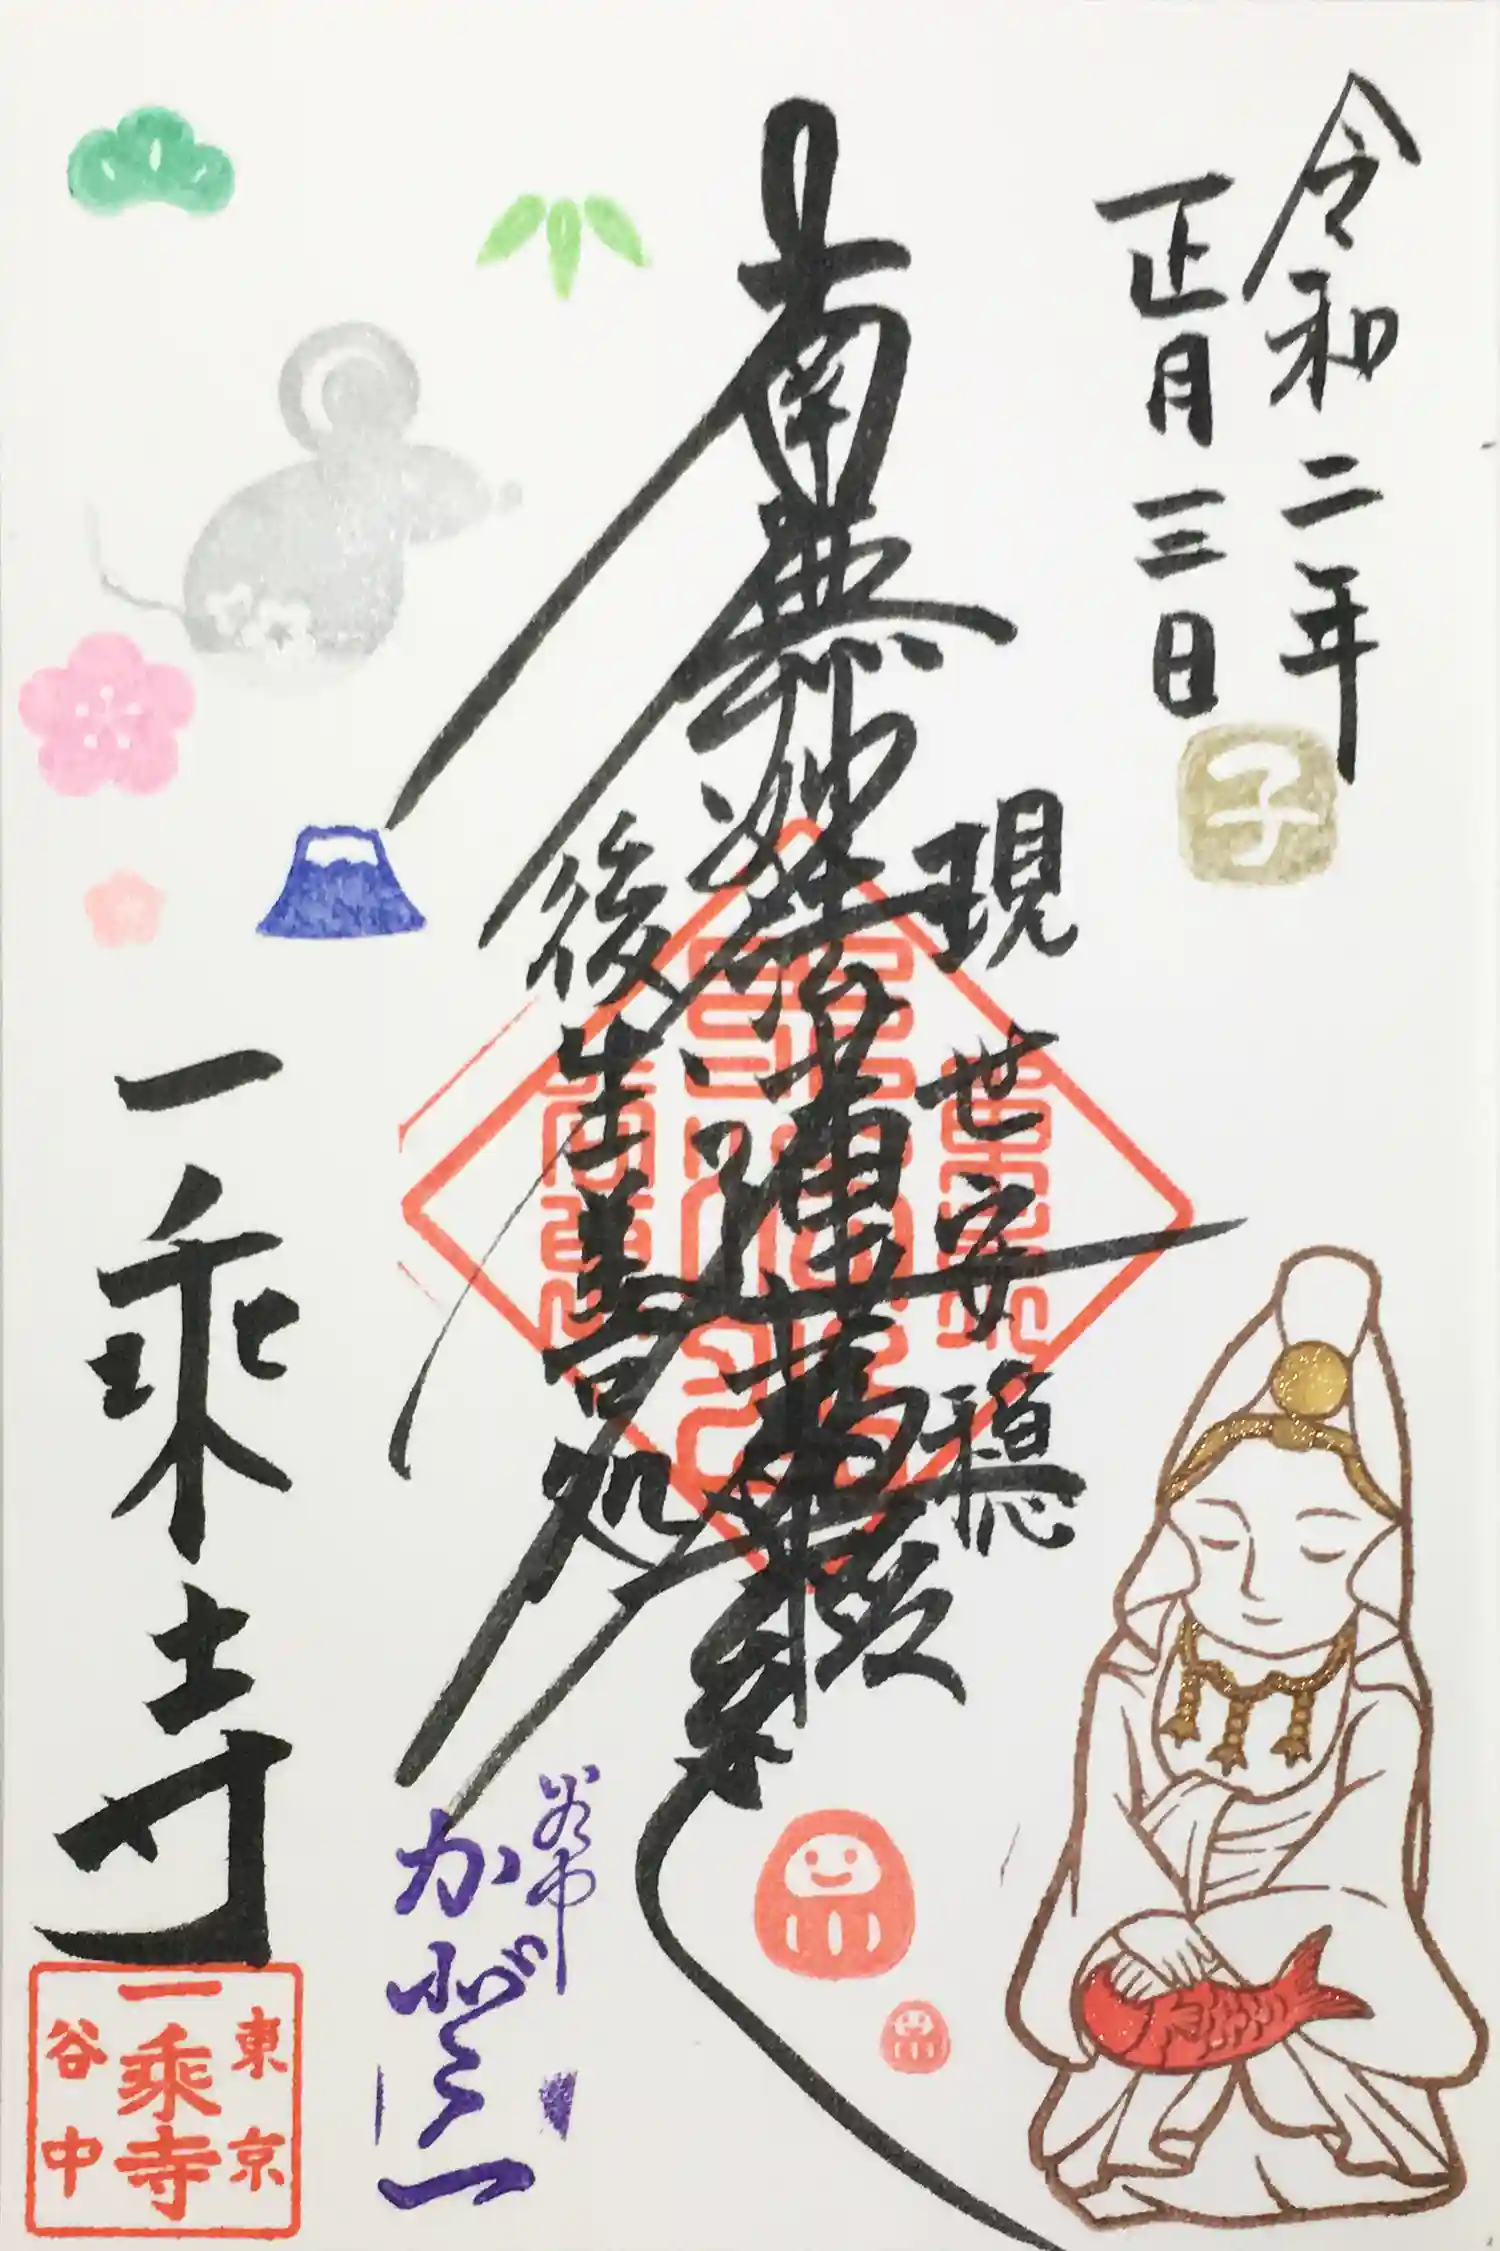 令和二年
正月三日
子
現世安穏
南無妙法蓮華経
後生善処
谷中
一乗寺
東京
一乗寺
谷中